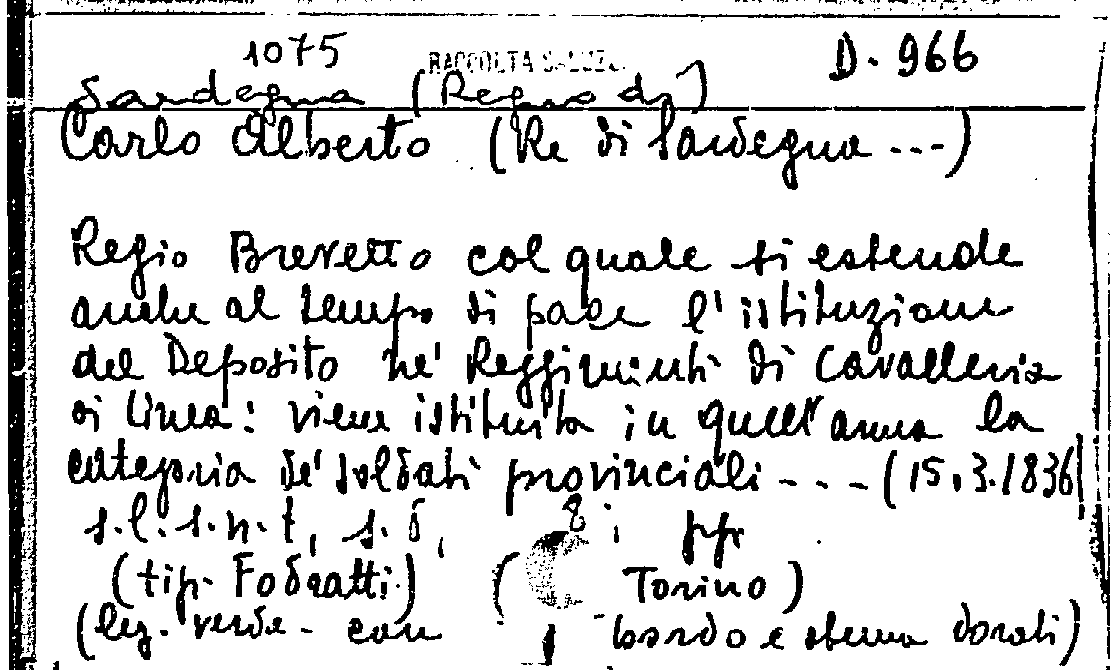 1075 RACCOLTA SALUZZO D. 966
Sardegna (Regno di)
Carlo Alberto (Re di Sardegna ---)
Regio Brevetto col quale si estende
anche al tempo di pace l'istituzione
del Deposito ne' Reggimenti di Cavalleria
di linea: viene istituita in quell'arma la
categoria de' soldati provinciali --- (15.3.1836)
s.l. s.n.t, s.d, 8° ; pp
(tip. Fodratti) ( Torino)
(leg. verde - con bordo e stemma dorati)